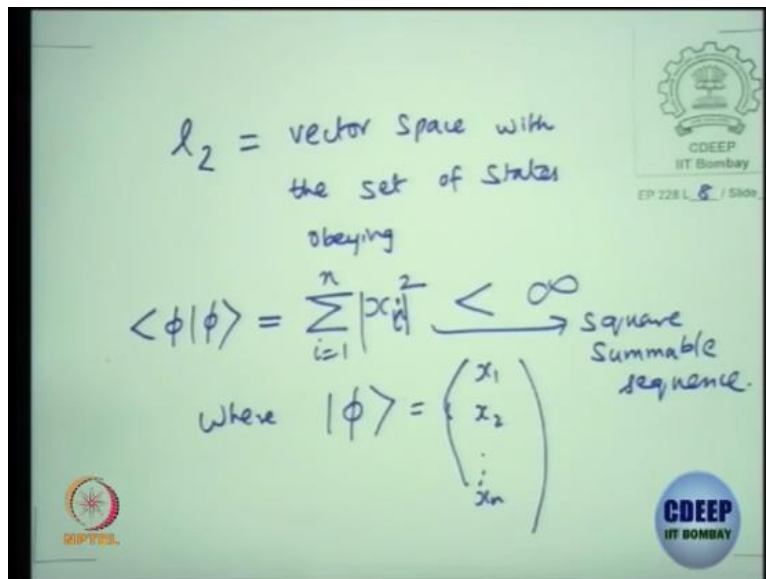 CDEEP
IIT Bombay
EP 228 L 8 / Slide
l₂ = vector space with
the set of states
obeying
<ϕ|ϕ> = ∑ᵢ₌₁ⁿ |xᵢ|² < ∞ → square
summable
sequence.
where |ϕ> = ( x₁
x₂
⋮
xₙ )
NPTEL
CDEEP
IIT BOMBAY